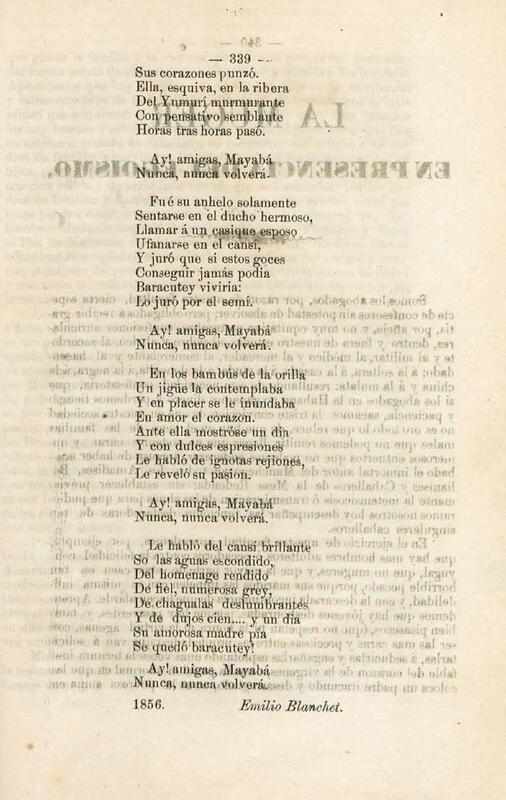 — 339 —
Sus corazones punzó.
Ella, esquiva, en la ribera
Del Yumurí murmurante
Con pensativo semblante
Horas tras horas pasó.
Ay! amigas, Mayabá
Nunca, nunca volverá.
Fué su anhelo solamente
Sentarse en el ducho hermoso,
Llamar á un casique esposo
Ufanarse en el cansí,
Y juró que si estos goces
Conseguir jamás podia
Baracutey viviria:
Lo juró por el semí.
Ay! amigas, Mayabá
Nunca, nunca volverá.
En los bambús de la orilla
Un jigüe la contemplaba
Y en placer se le inundaba
En amor el corazon.
Ante ella mostróse un dia
Y con dulces espresiones
Le habló de ignotas rejiones,
Le reveló su pasion.
Ay! amigas, Mayabá
Nunca, nunca volverá.
Le habló del cansí brillante
So las aguas escondido,
Del homenage rendido
De fiel, numerosa grey,
De chagualas deslumbrantes
Y de dujos cien.... y un dia
Su amorosa madre pia
Se quedó baracutey!
Ay! amigas, Mayabá
Nunca, nunca volverá.
1856. Emilio Blanchet.